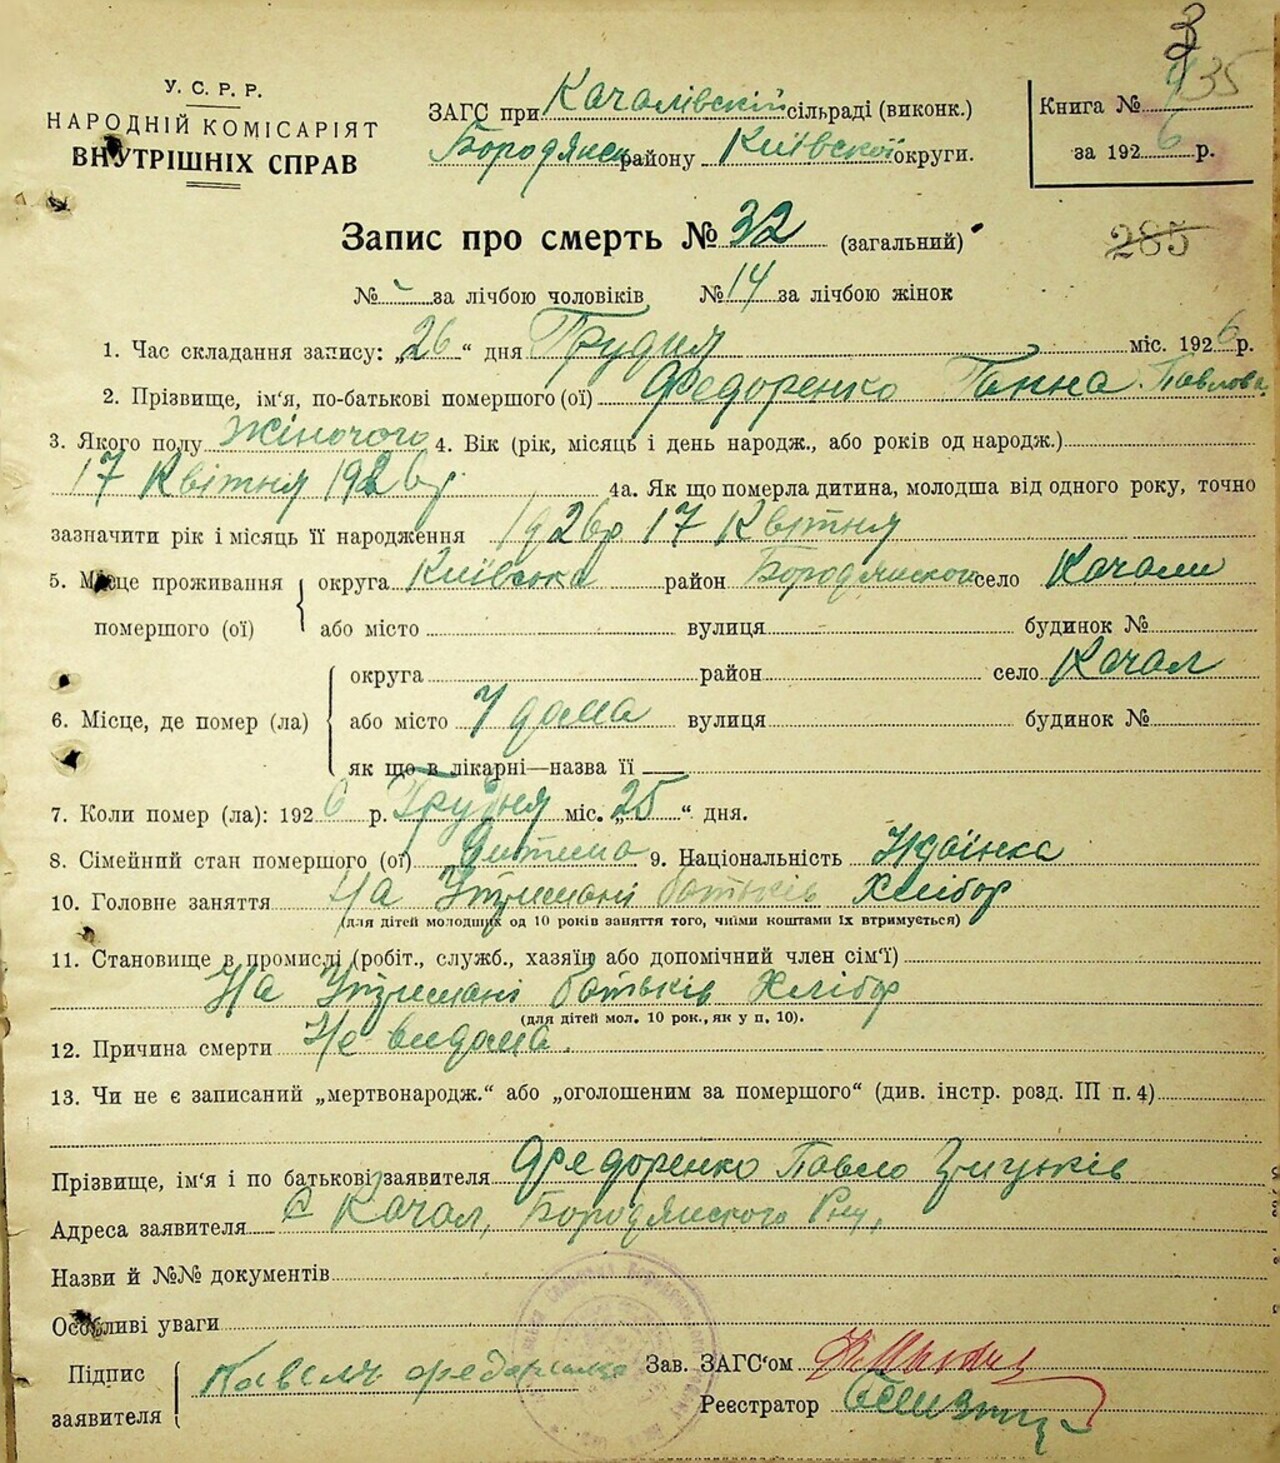 У. С. Р. Р.
НАРОДНІЙ КОМІСАРІЯТ
ВНУТРІШНІХ СПРАВ
ЗАГС при Качалівскій сільраді (виконк.)
Бородянск району Київскої округи.
Книга №
за 1926 р.
3
35
285
Запис про смерть № 32 (загальний)
№ - за лічбою чоловіків № 14 за лічбою жінок
1. Час складання запису: „26“ дня Грудня міс. 1926 р.
2. Прізвище, ім'я, по-батькові помершого (ої) Федоренко Ганна Павлова
3. Якого полу Жіночого 4. Вік (рік, місяць і день народж., або років од народж.)
17 Квітня 1926 р. 4а. Як що померла дитина, молодша від одного року, точно
зазначити рік і місяць її народження 1926 р 17 Квітня
5. Місце проживання помершого (ої) округа Київська район Бородянской село Качали
або місто вулиця будинок №
6. Місце, де помер (ла) округа район село Качал
або місто У дома вулиця будинок №
як що в лікарні—назва її
7. Коли помер (ла): 1926 р. Грудня міс. „25“ дня.
8. Сімейний стан помершого (ої) Дитина 9. Національність
10. Головне заняття На Утримані батьків Хлібор
(для дітей молодших од 10 років заняття того, чиїми коштами їх втримується)
11. Становище в промислі (робіт., служб., хазяїн або допомічний член сім'ї)
На Утримані батьків Хлібор
(для дітей мол. 10 рок., як у п. 10).
12. Причина смерти Не видама.
13. Чи не є записаний „мертвонародж.“ або „оголошеним за помершого“ (див. інстр. розд. III п. 4)
Прізвище, ім'я і по батькові заявителя Федоренко Павло
Адреса заявителя с Качал, Бородянского Рну,
Назви й №№ документів
Особливі уваги
Підпис заявителя Зав. ЗАГС'ом
Реєстратор